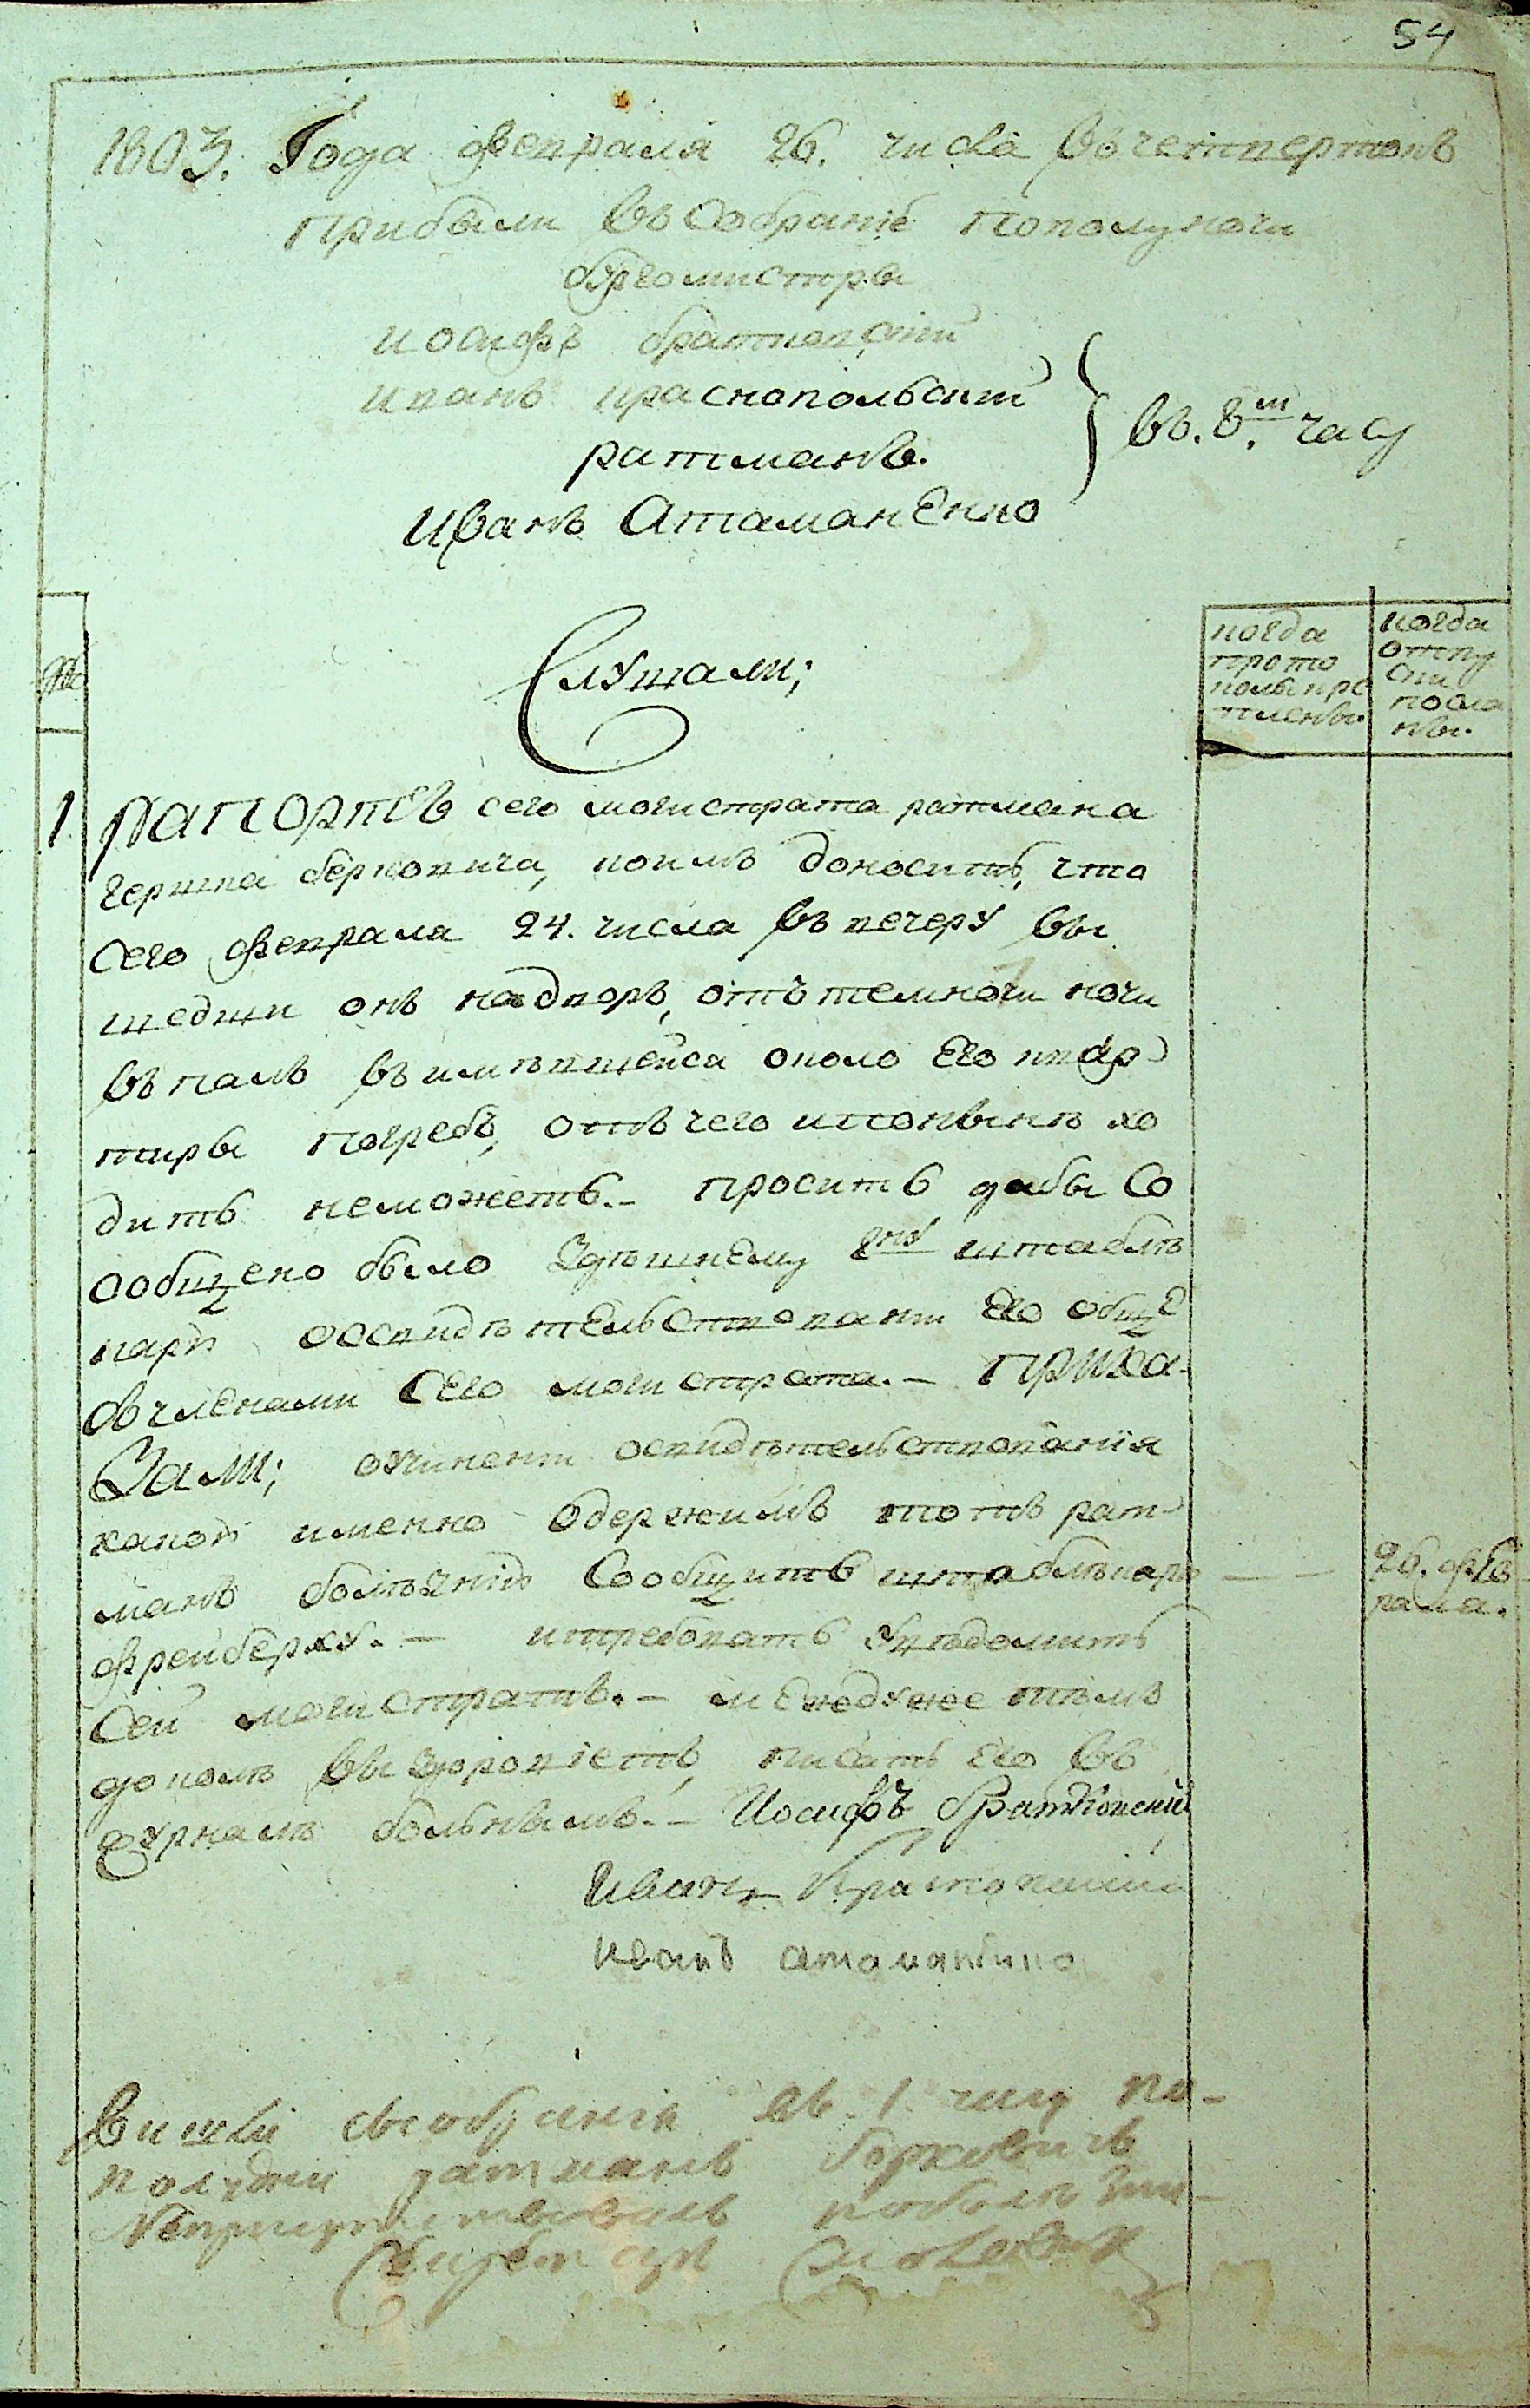 54
1803. Года февраля 26. числа въ четвертокъ
прибыли въ собраніе пополуночи
бургомистры
иосифъ братковскій
иванъ краснопольскій
въ. 8м. часу
ратманъ.
Иванъ Атаманенко
№
Слушали;
когда
прото
колы кре
плены.
когда
отпу
ски
посла
ны.
1 рапортъ сего могистрата ратмана
гершка берковича, коимъ доноситъ, что
сего февраля 24. числа въ вечеру вы
шедши онъ надворъ, отъ темночи ночи
въ палъ въ имѣвшейся около Его квар
тиры погребъ, отъ чего и понынѣ хо
дить неможетъ. – проситъ дабы Со
общено было здѣшнему гну штаблѣ
карю о освидѣтельствовани Его обще
съ членами Сего могистрата. – Прика-
Зали; о учинени освидѣтельствованія
какой именно одержимъ тотъ рат-
манъ болѣзнію Сообщить штаблѣкарю
фрейберху. – и требовать увѣдомить
Сей могистратъ. – между же тѣмъ
доколѣ выздоровіетъ, писать Его въ
журналѣ больнымъ. – Иосифъ братковский
26. фев
раля.
Иванъ Краснопольский
иванъ атаманенко
Вишли съ собрания въ 1. часу по-
полудни ратманъ берковичъ
Неприсутствовалъ поболѣзни